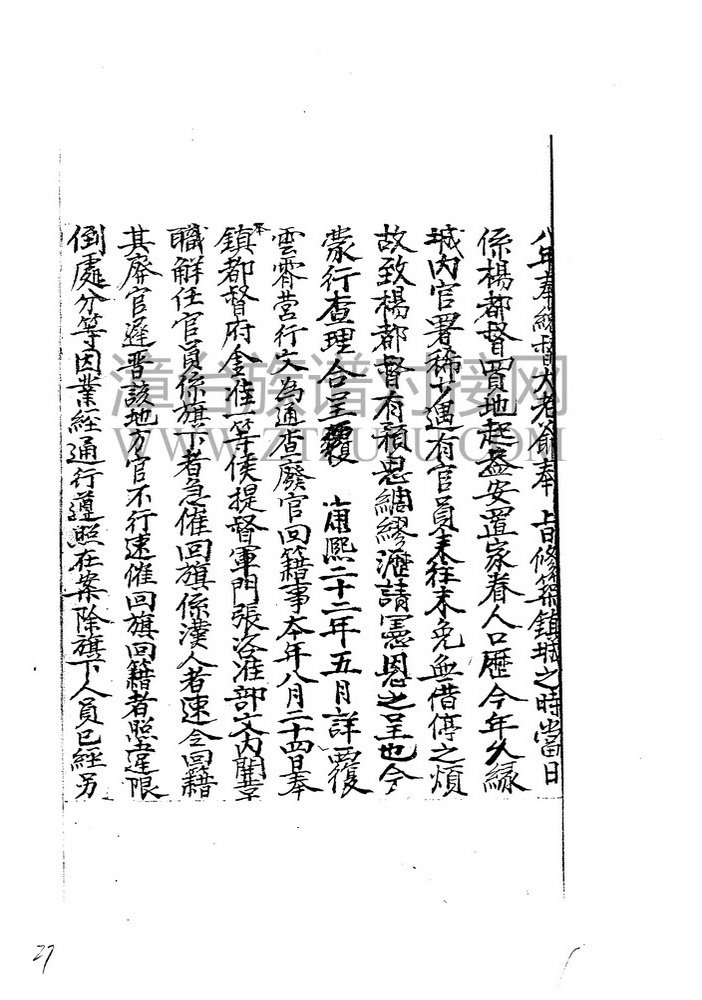 八年奉總督大老爺奉 旨修築鎮城之時當日
係楊都督買地起蓋安置家眷人口歷今年久緣
城內官署稀少遇有官員來往未免無借停之煩
故致楊都督有籲恩綢繆瀝請憲恩之呈也今
蒙行查理合呈覆 康熙二十二年五月詳覆
雲霄營行文為通查廢官回籍事本年八月二十四日奉
本鎮都督府金准一等侯提督軍門張咨准部文內開革
職解任官員係旗下者急催回旗係漢人者速令回籍
其廢官遲晋該地方官不行速催回旗回籍者照違限
倒處分等因業經通行遵照在案除旗下人員已經另
漳台族谱对接网
WWW.ZTZUPU.COM
27